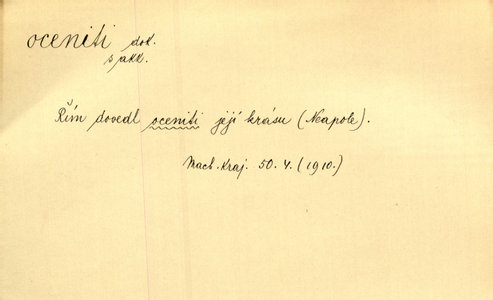 oceniti dok.
s akk.
Řím dovedl oceniti její krásu (Neapole).
Mach. Kraj. 50. 4. (1910.)